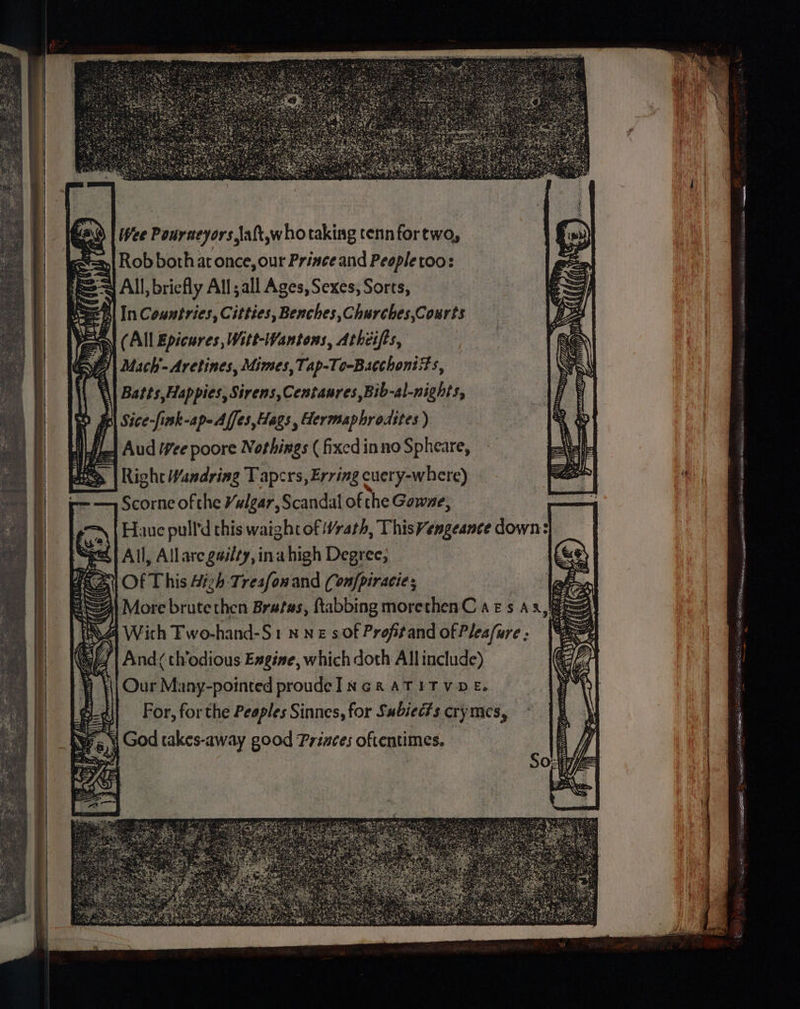 Wee Pourueyors ſaſt, who taking tenn for two,
Rob both at once, our Prince and People too:
All, briefly All; all Ages, Sexes, Sorts,
In Countries, Citties, Benches, Churches, Courts
(All Epicures, Witt-Wantons, Athëiſts,
Mach'-Aretines, Mimes, Tap-To-Bacchoniſts,
Batts, Harpies, Sirens, Centaures, Bib-al-nights,
Sice-ſink-ap-Aſſes, Hags, Hermaphrodites)
Aud Wee poore Nothings (fixed in no Spheare,
Right Wandring Tapers, Erring euery-where)
Scorne of the Vulgar, Scandal of the Gowne,
Haue pull'd this waight of Wrath, This Vengeance down:
All, All are guilty, in a high Degree,
Of This High-Treaſon and Conſpiracie;
More brute then Brutus, ſtabbing more then CAESAR,
With Two-hand-SINNES of Profit and of Pleaſure:
And (th'odious Engine, which doth All include)
Our Many-pointed proude INGRATITVDE.
For, for the Peoples Sinnes, for Subiects crymes,
God takes-away good Princes oftentimes.
So